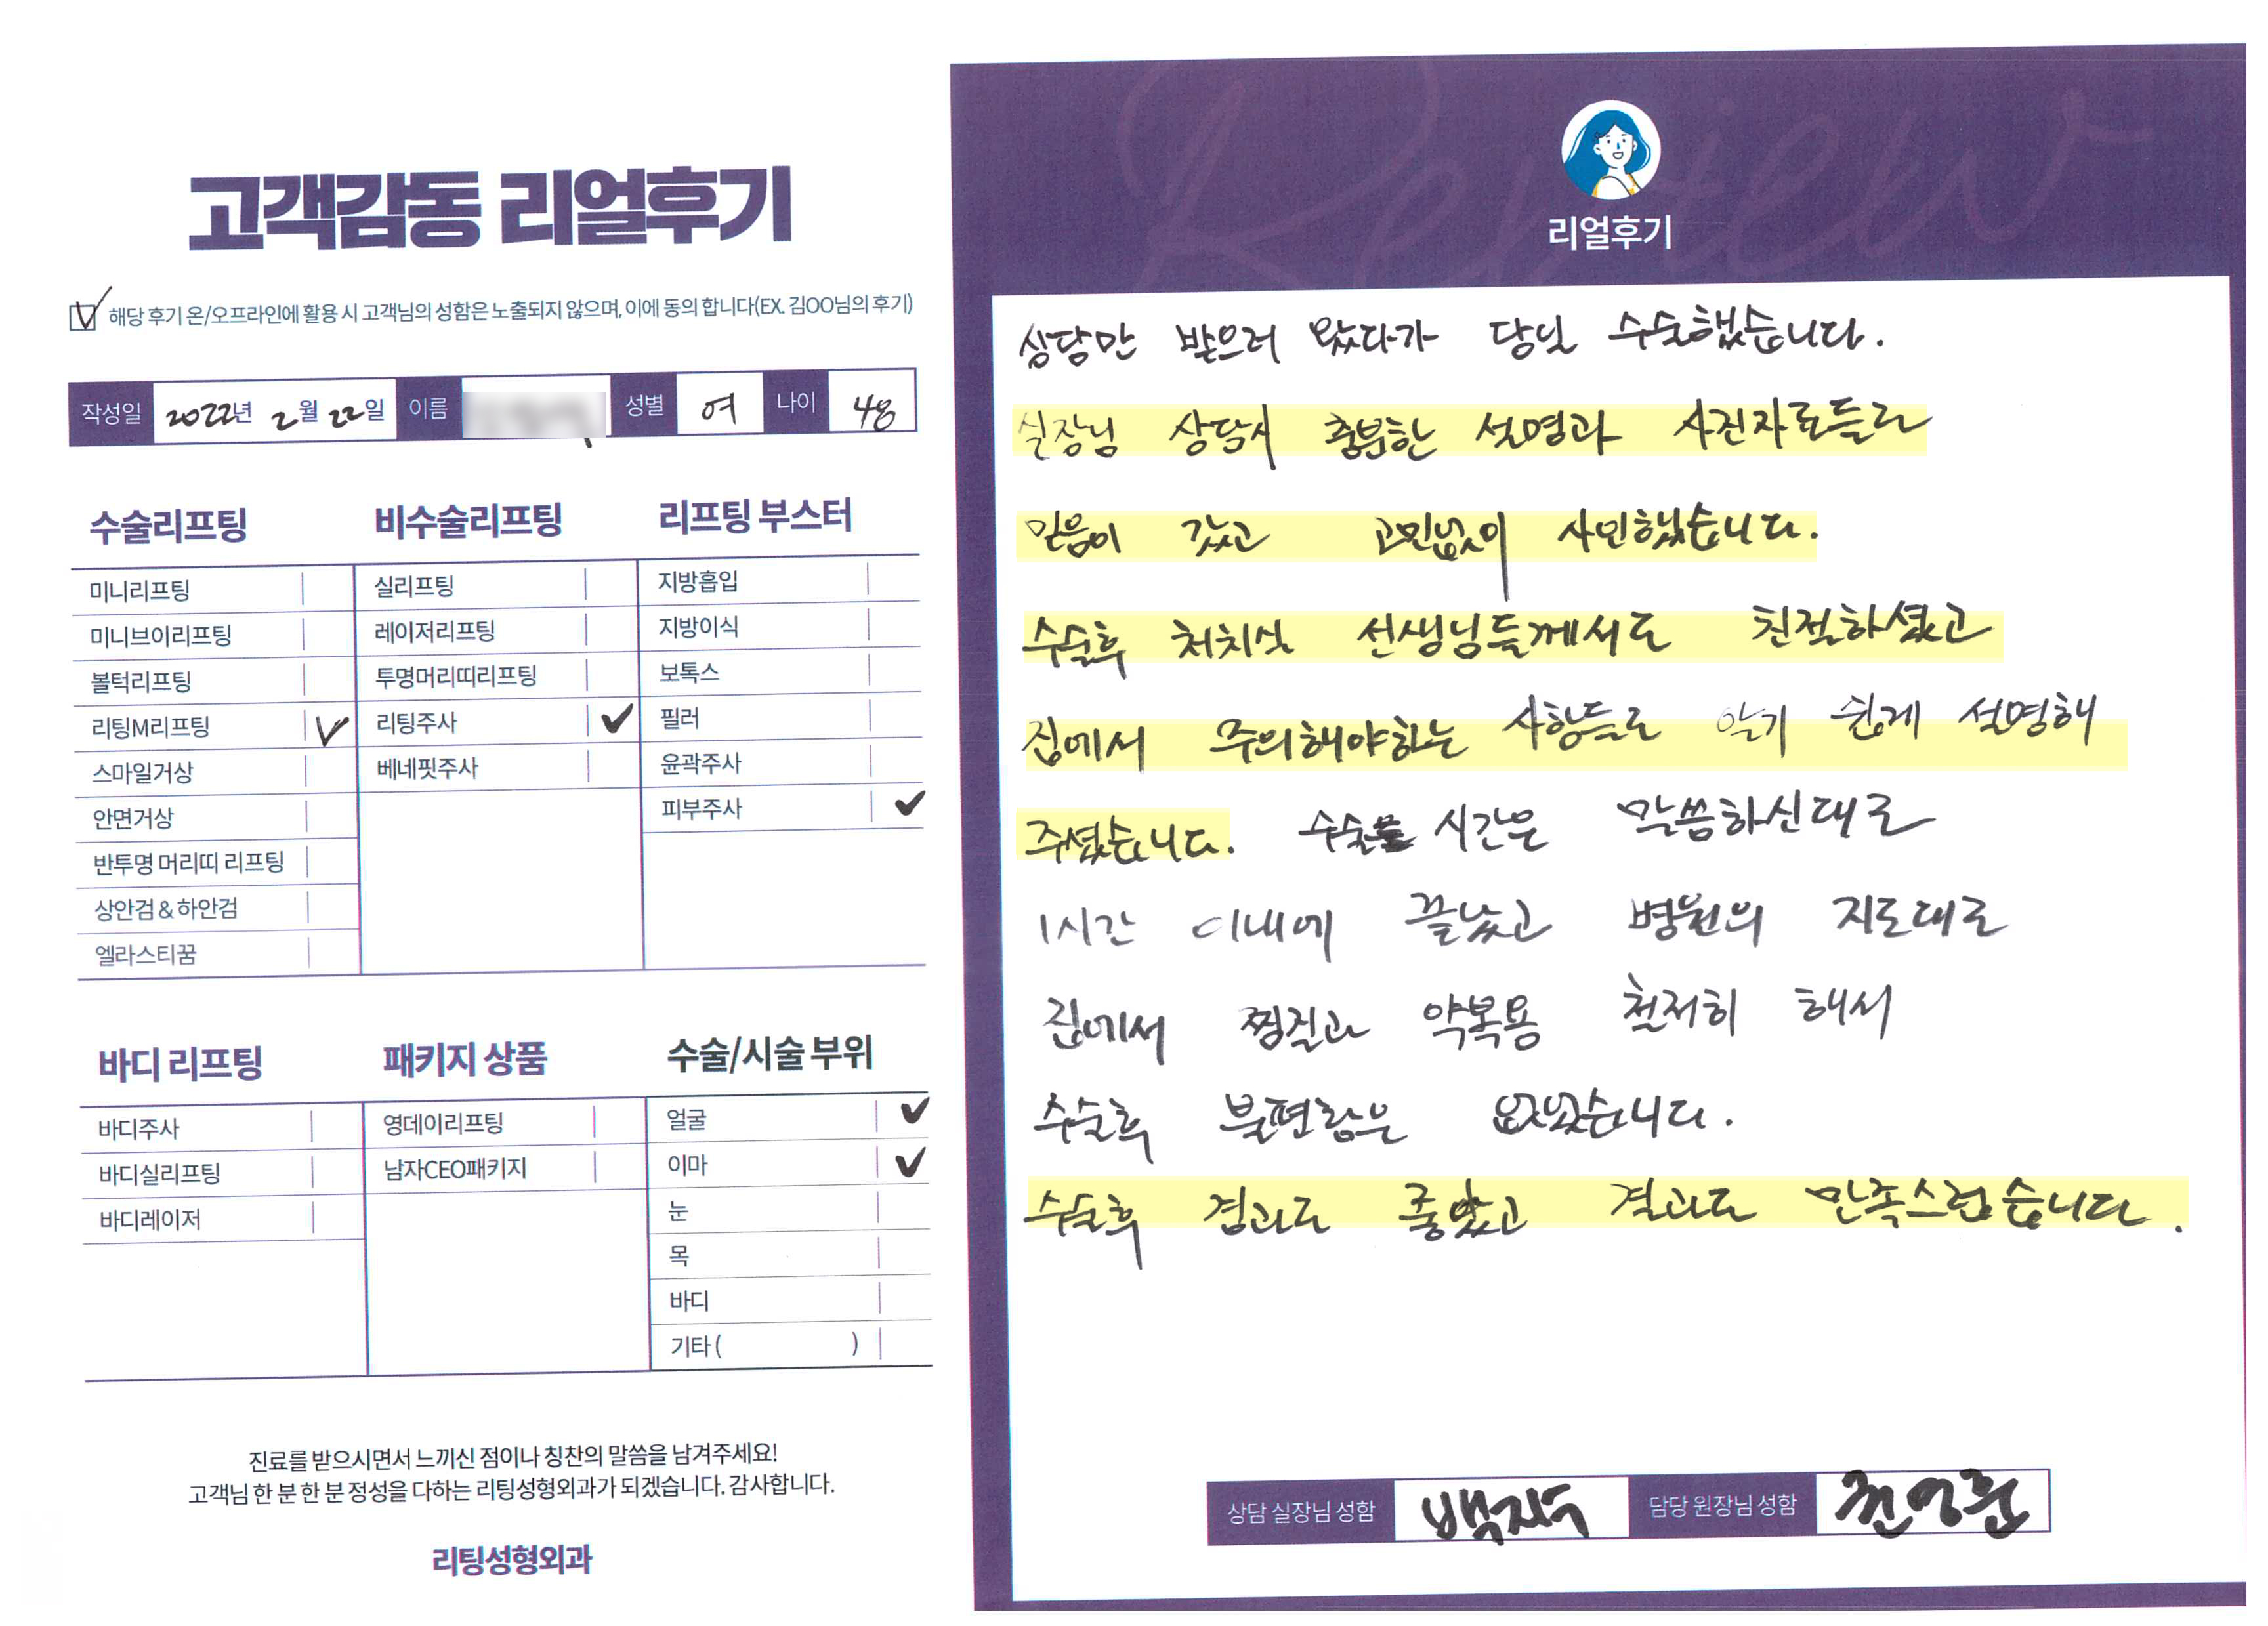 고객감동 리얼후기
해당 후기 온/오프라인에 활용 시 고객님의 성함은 노출되지 않으며, 이에 동의 합니다(EX. 김OO님의 후기)
작성일 2022년 2월 22일 이름 성별 여 나이 48
수술리프팅
미니리프팅
미니브이리프팅
볼턱리프팅
리팅M리프팅
스마일거상
안면거상
반투명 머리띠 리프팅
상안검 & 하안검
엘라스티꿈
비수술리프팅
실리프팅
레이저리프팅
투명머리띠리프팅
리팅주사
베네핏주사
리프팅 부스터
지방흡입
지방이식
보톡스
필러
윤곽주사
피부주사
바디 리프팅
바디주사
바디실리프팅
바디레이저
패키지 상품
영데이리프팅
남자CEO패키지
수술/시술 부위
얼굴
이마
눈
목
바디
기타 ( )
진료를 받으시면서 느끼신 점이나 칭찬의 말씀을 남겨주세요!
고객님 한 분 한 분 정성을 다하는 리팅성형외과가 되겠습니다. 감사합니다.
리팅성형외과
Review
리얼후기
상담만 받으러 왔다가 당일 수술했습니다.
실장님 상담시 충분한 설명과 사진자료들로
믿음이 갔고 고민없이 사인했습니다.
수술후 처치실 선생님들께서도 친절하셨고
집에서 주의해야하는 사항들도 알기 쉽게 설명해
주셨습니다. 수술 시간은 말씀하신대로
1시간 이내에 끝났고 병원의 지도대로
집에서 찜질과 약복용 철저히 해서
수술후 불편함은 없었습니다.
수술후 경과도 좋았고 결과도 만족스럽습니다.
상담 실장님 성함 백지수 담당 원장님 성함